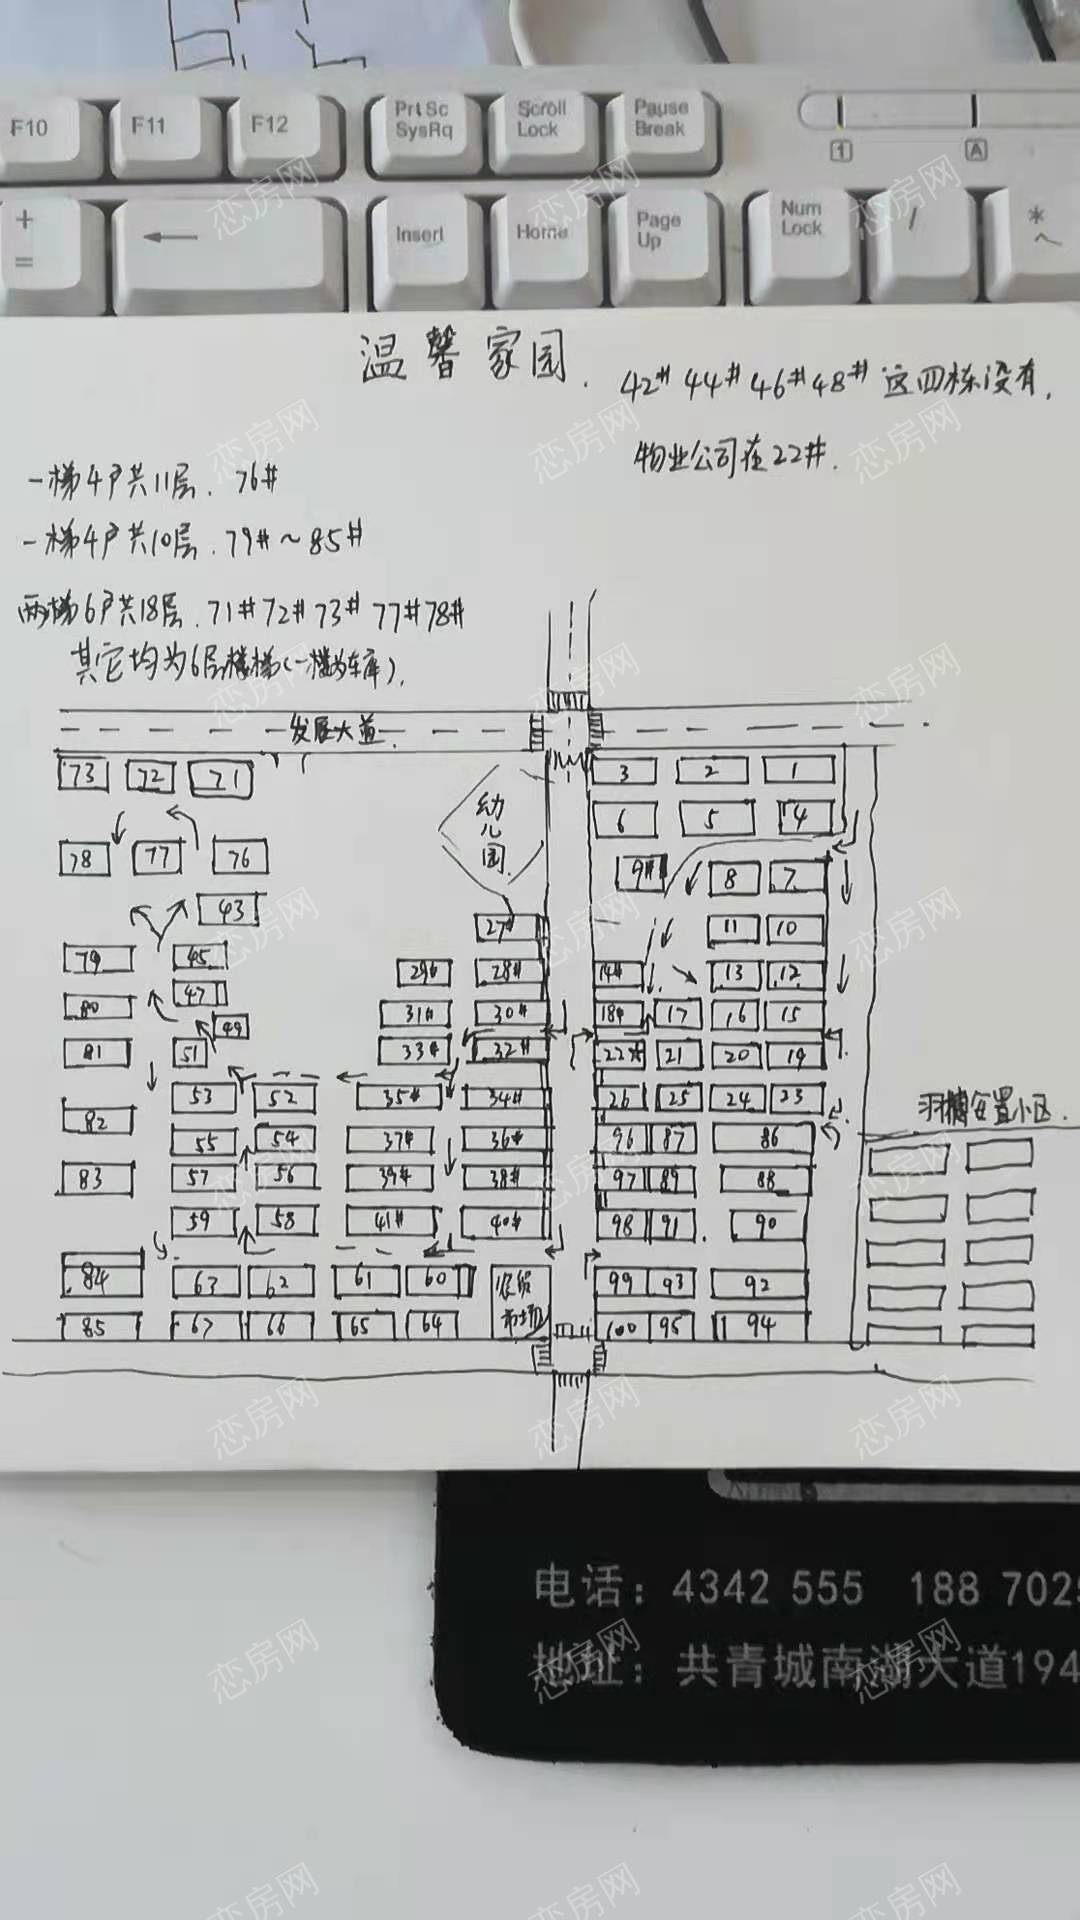 F10 F11 F12 Prt Sc SysRq Scroll Lock Pause Break
1 A
+ = ← Insert Home Page Up Num Lock / *
温馨家园.
42# 44# 46# 48# 这四栋没有.
物业公司在22#.
一梯4户共11层. 76#
一梯4户共10层. 79#～85#
两梯6户共18层. 71# 72# 73# 77# 78#
其它均为6层楼梯(一楼为车库).
发展大道.
73 72 71 3 2 1
幼儿园.
6 5 4
78 77 76 9# 8 7
43 27# 11 10
79 45 29# 28# 14# 13 12
80 47 31# 30# 18# 17 16 15
49
81 51 33# 32# 22# 21 20 19
53 52 35# 34# 26 25 24 23
82 55 54 37# 36# 96 87 86
83 57 56 39# 38# 97 89 88
59 58 41# 40# 98 91 90
84 63 62 61 60 99 93 92
农贸市场
85 67 66 65 64 100 95 94
安置小区.
电话：4342 555 188 702
地址：共青城南湖大道194
恋房网